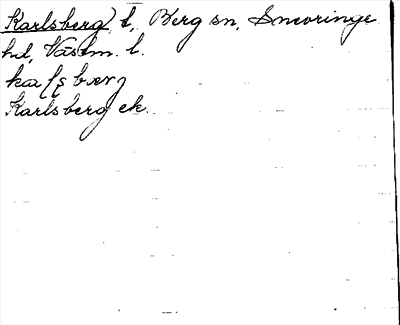 Karlsberg) t, Berg sn, Snevringe
hd, Västm. l.
Karlsberg ek.